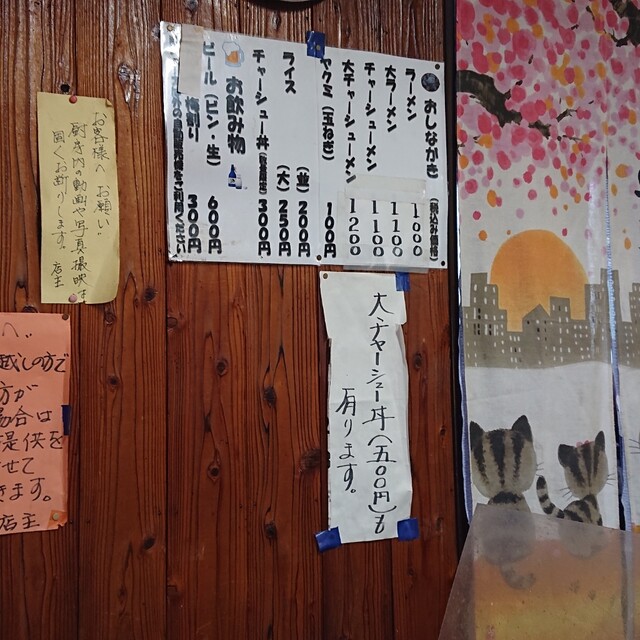 おしながき (税込み価格)
ラーメン 1000
大ラーメン 1100
チャーシューメン 1100
大チャーシューメン 1200
ヤクミ (玉ねぎ) 100円
ライス (並) 200円
(大) 250円
チャーシュー丼 300円
お飲み物
ビール (ビン・生) 600円
梅割り 300円
をご利用ください
大チャーシュー丼(五〇〇円)も
有ります。
お客様へ お願い
厨房内の動画や写真撮映は
固くお断りします。店主
へ
越しの方で
方が
場合は
提供を
せて
きます。
店主